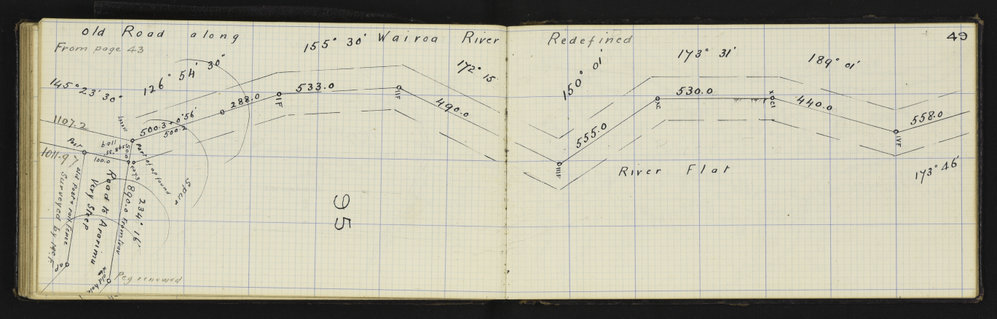 old Road along Wairoa River Redefined
49
From page 43
145° 23' 30"
126° 54' 30"
155° 30'
172° 15
150° 01'
173° 31'
189° 01'
1107.2
1011.9
500.3 + 0.56
500.2
288.0
533.0
490.0
555.0
530.0
440.0
558.0
173° 46'
River Flat
Spur
95
100.0
Post
Road to Ararimu
Very Steep
234° 16'
890.0 from trav
old Post & rail fence
Surveyed by
Peg renewed